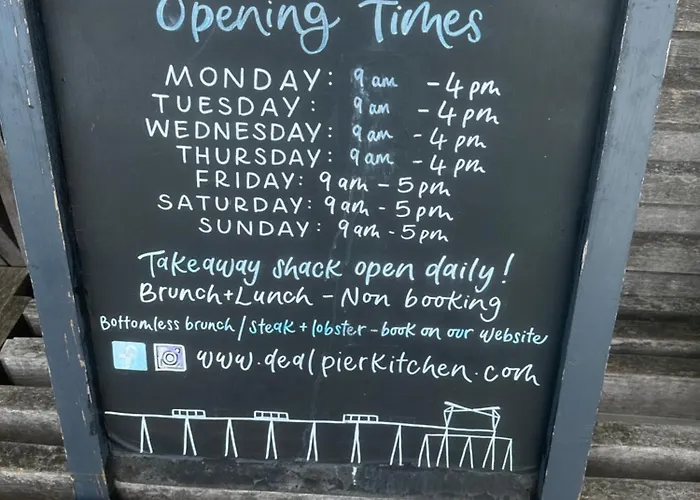 Opening Times
MONDAY: 9am - 4pm
TUESDAY: 9am - 4pm
WEDNESDAY: 9am - 4pm
THURSDAY: 9am - 4pm
FRIDAY: 9am - 5pm
SATURDAY: 9am - 5pm
SUNDAY: 9am - 5pm
Takeaway shack open daily!
Brunch+Lunch - Non booking
Bottomless brunch/steak + lobster - book on our website
www.dealpierkitchen.com